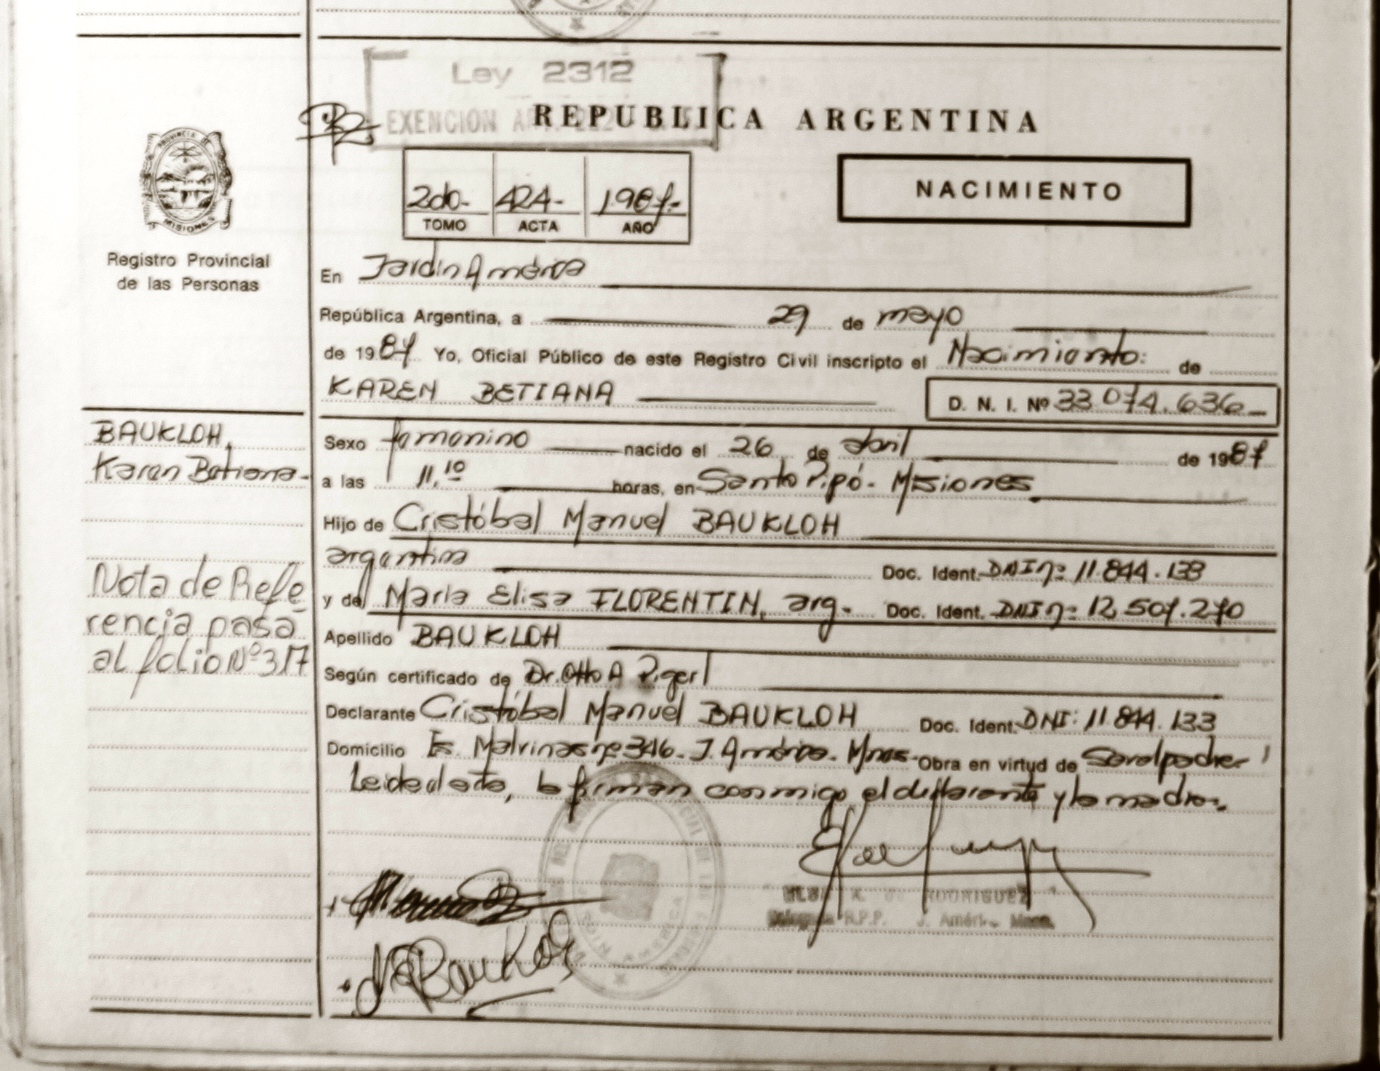 Ley 2312
EXENCION
REPUBLICA ARGENTINA
PROVINCIA DE
MISIONES
Registro Provincial
de las Personas
2do- 424- 1987-
TOMO ACTA AÑO
NACIMIENTO
En Jardín América
República Argentina, a 29 de mayo
de 1987 Yo, Oficial Público de este Registro Civil inscripto el Nacimiento: de
KAREN BETIANA D. N. I. Nº 33.074.636
BAUKLOH,
Karen Betiana-
Sexo femenino nacido el 26 de abril de 1987
a las 11,10 horas, en Santo Pipó- Misiones
Hijo de Cristóbal Manuel BAUKLOH
argentino Doc. Ident. DNI nº 11.844.133
y de María Elisa FLORENTIN, arg. Doc. Ident. DNI nº 12.507.270
Apellido BAUKLOH
Según certificado de Dr. Otto A
Declarante Cristóbal Manuel BAUKLOH Doc. Ident. DNI: 11.844.133
Domicilio Is. Malvinas nº 346- J. América- Mnes- Obra en virtud de Ser el padre
Leída el acta, la firman conmigo el declarante y la madre.
Nota de Refe
rencia pasa
al folio Nº 317
RODRIGUEZ
Delegada R.P.P. J. América Mnes.
Baukloh